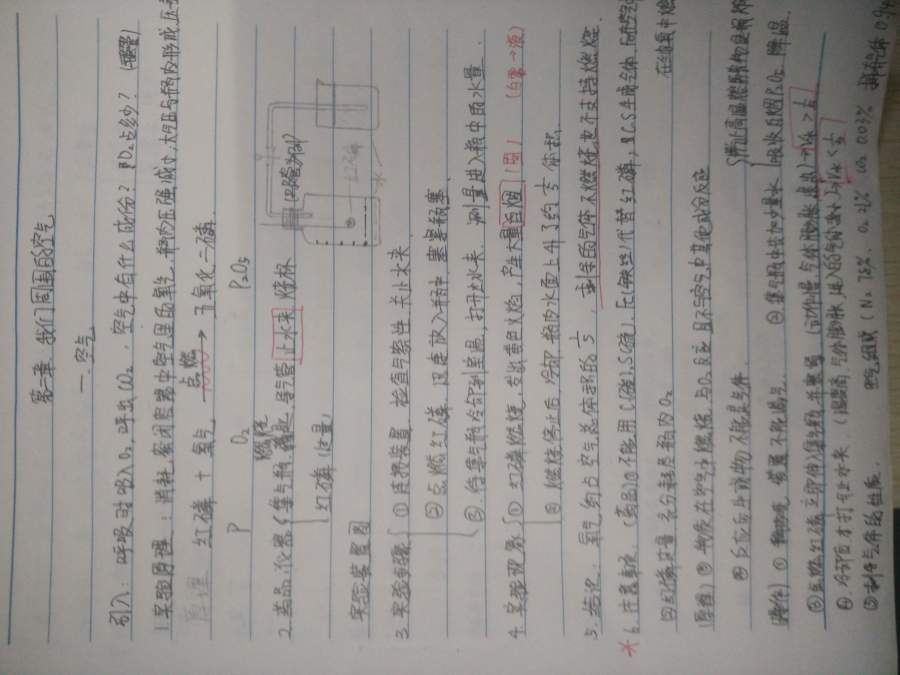 第二章 我们周围的空气
一. 空气
引入: 呼吸时吸入O₂, 呼出CO₂, 空气中有什么成份? 即O₂占多少?
1.实验原理: 消耗密闭容器中空气里的氧气, 瓶内压强减小, 大气压与瓶内形成压
红磷 + 氧气 点燃→ 五氧化二磷
P O₂ P₂O₅
2.药品仪器 集气瓶 燃烧匙, 导气管 止水夹, 烧杯
红磷 (过量)
实验装置图
红磷
水
3.实验步骤 ① 连接装置 检查气密性. 关止水夹
② 点燃红磷 迅速放入瓶中 塞紧瓶塞
③ 待集气瓶冷却到室温, 打开止水夹. 测量进入瓶中的水量.
4.实验现象 ① 红磷燃烧, 发出黄色火焰, 产生大量白烟 (固) (白雾→液)
② 燃烧停止后 冷却 瓶内水面上升了约1/5体积.
5.结论: 氧气约占空气总体积的1/5, 剩余的气体不燃烧, 也不支持燃烧.
*6. 注意事项. (药品)① 不能用C(碳), S(硫), Fe(铁丝)代替红磷, ∵C S生成气体, Fe在空
在纯氧中燃
② 红磷过量 充分耗尽瓶内O₂
(原理) ① 物质在空气中燃烧, 与O₂反应 且不与空气中其他成分反应
② 反应后生成物不能是气体
(操作) ① 装置不能漏气. ② 集气瓶中装少量水
防止高温燃烧物
吸收白烟P₂O₅ 降温
③ 点燃红磷立即伸入集气瓶并塞紧 气体膨胀
④ 冷却后才打开止水夹 (温度高, 气体膨胀, 进入的气体
⑤ 剩余气体的性质.
空气组成 (N₂ 78% O₂ 21% CO₂ 0.03% 稀有气体 0.94